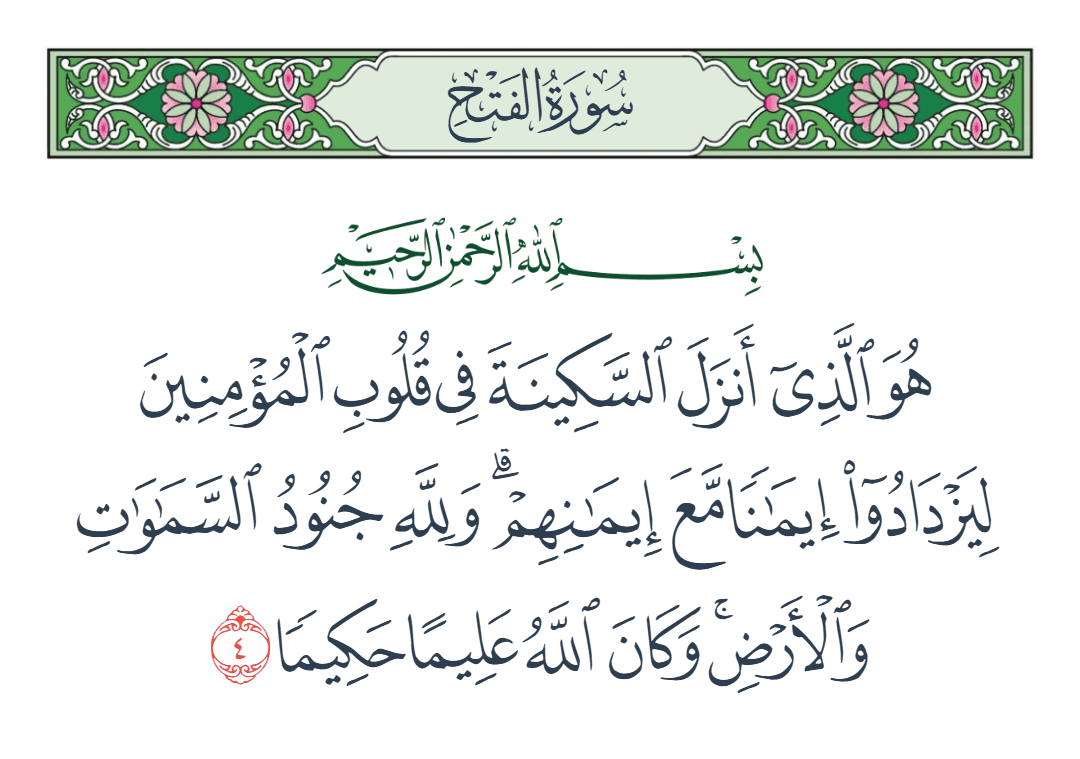 سُورَةُ الفَتْحِ
بِسْمِ ٱللَّهِ ٱلرَّحْمَٰنِ ٱلرَّحِيمِ
هُوَ ٱلَّذِىٓ أَنزَلَ ٱلسَّكِينَةَ فِى قُلُوبِ ٱلْمُؤْمِنِينَ
لِيَزْدَادُوٓا۟ إِيمَٰنًا مَّعَ إِيمَٰنِهِمْ ۗ وَلِلَّهِ جُنُودُ ٱلسَّمَٰوَٰتِ
وَٱلْأَرْضِ ۚ وَكَانَ ٱللَّهُ عَلِيمًا حَكِيمًا ٤